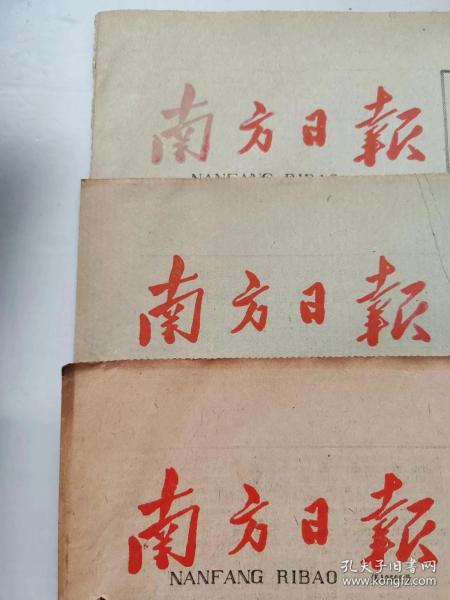 南方日報
NANFANG RIBAO
南方日報
南方日報
NANFANG RIBAO
孔夫子旧书网